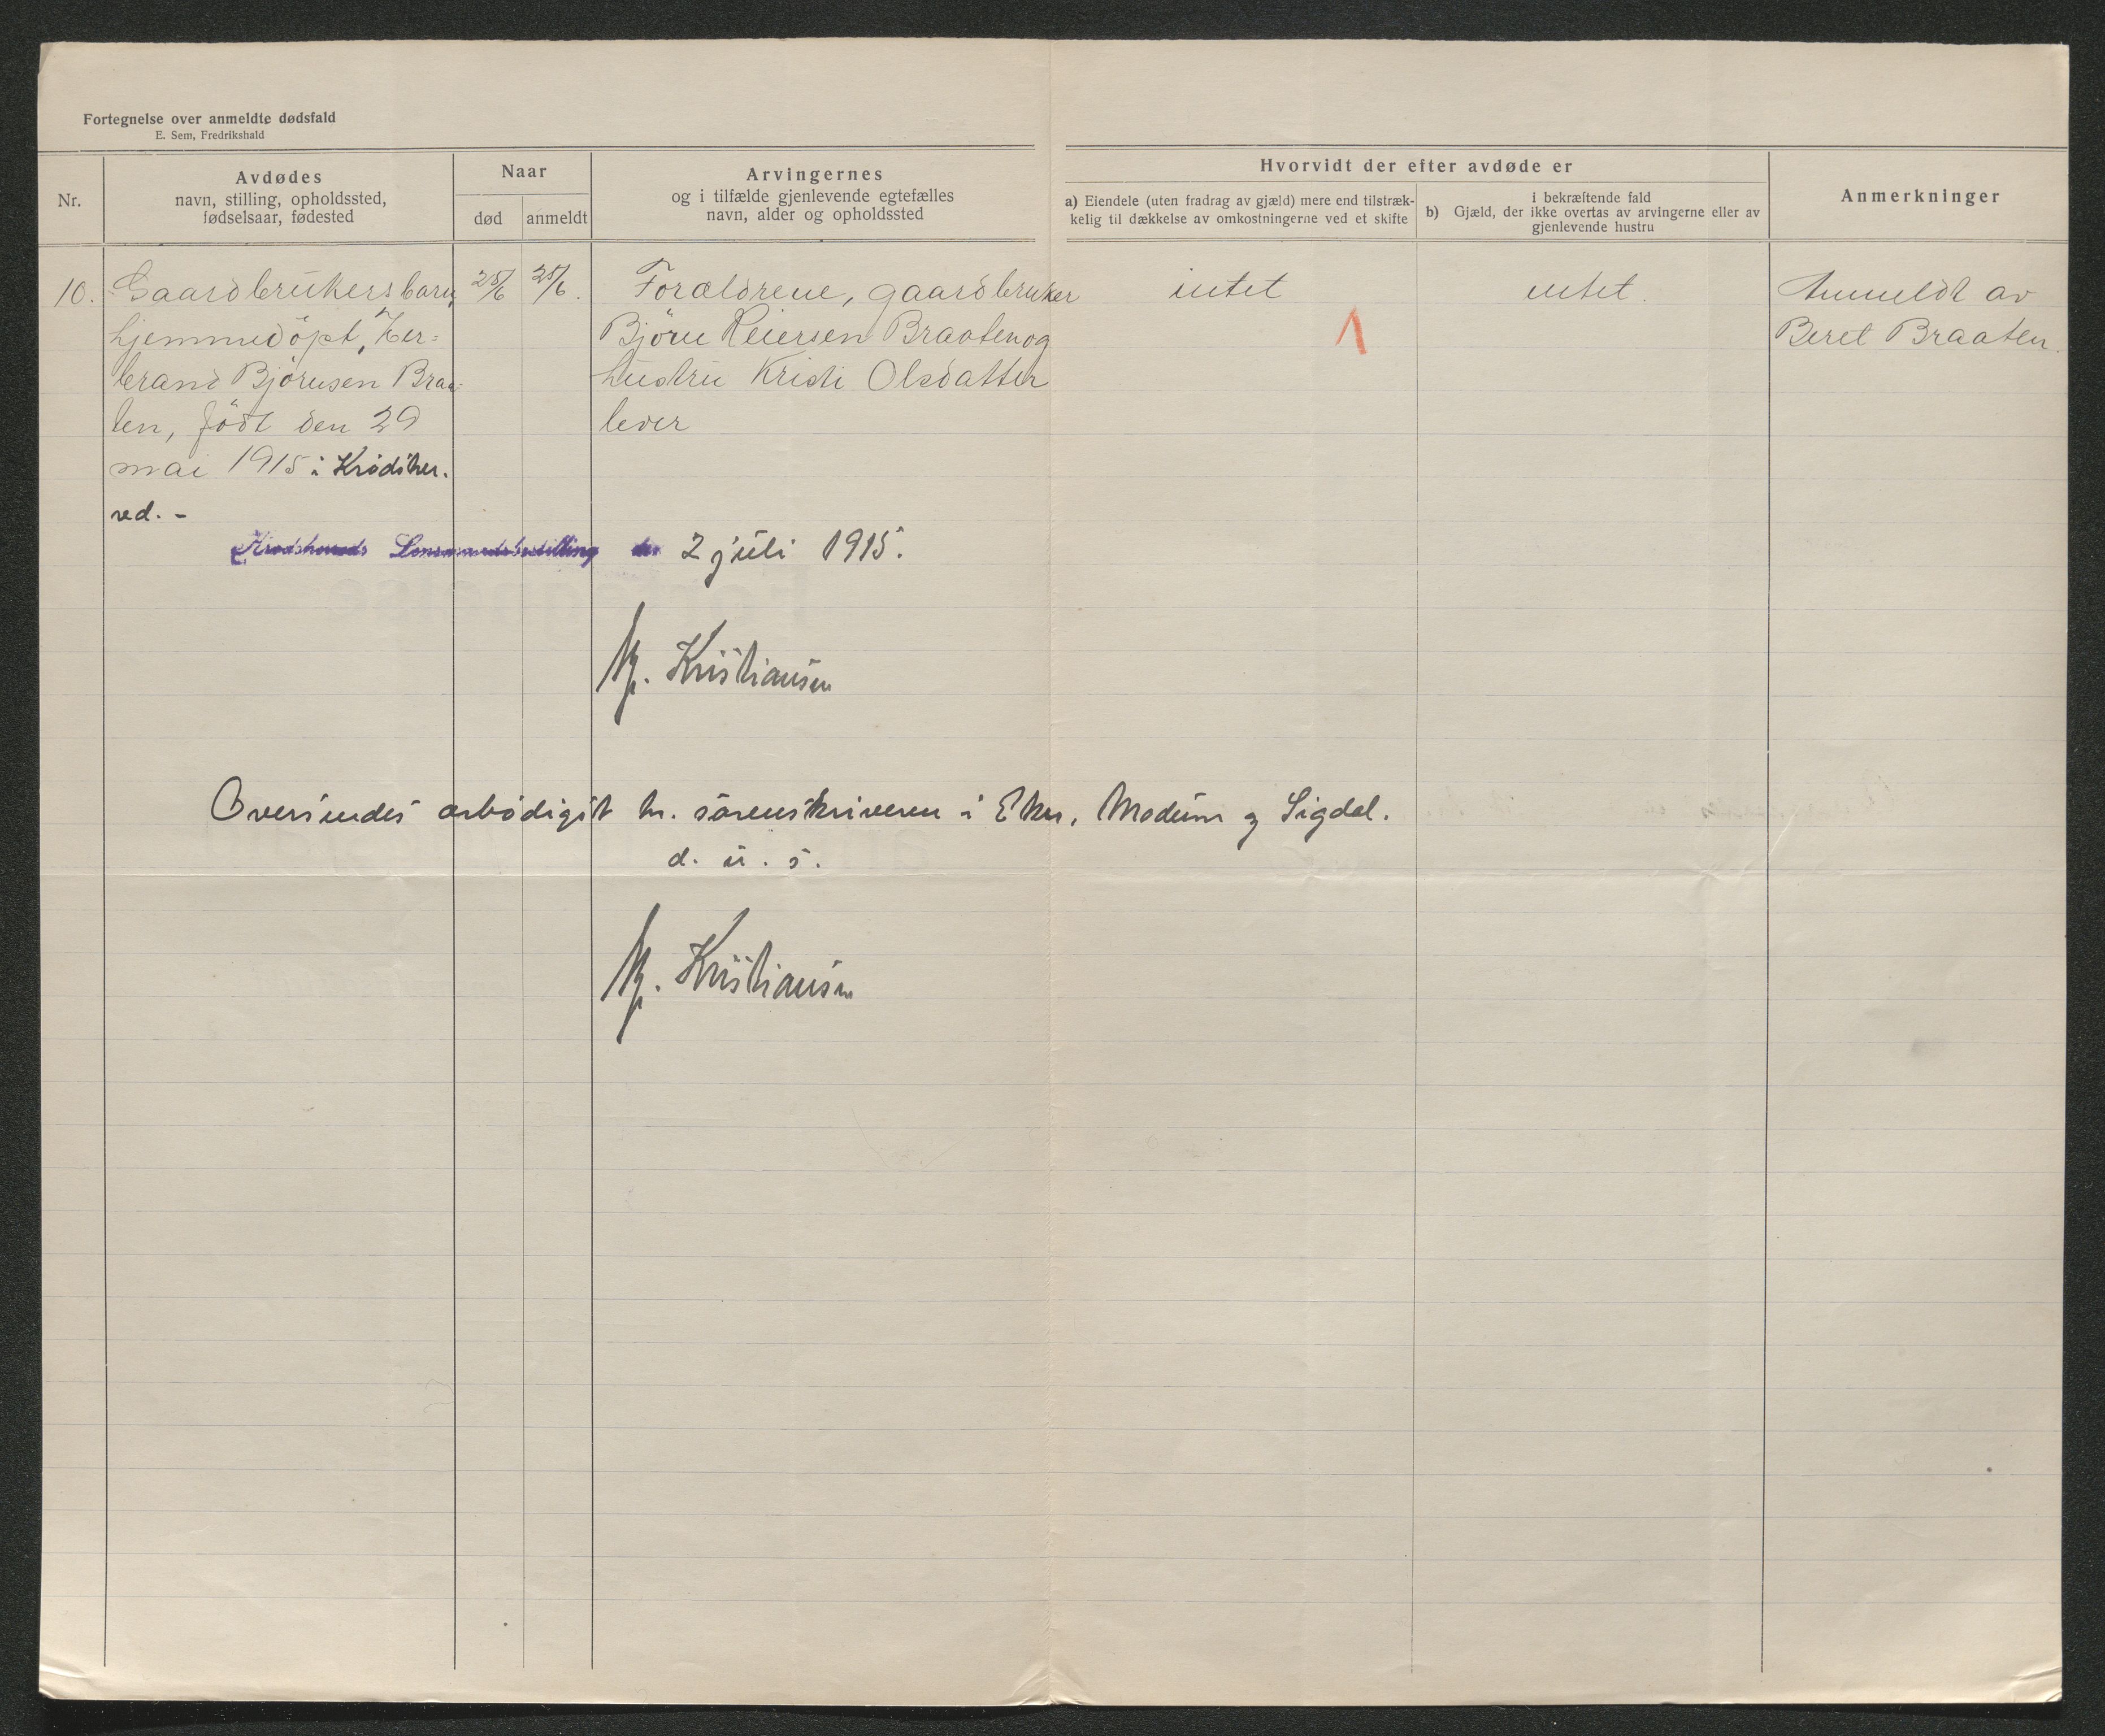 Fortegnelse over anmeldte dødsfald
E. Sem, Fredrikshald
Nr.
Avdødes
navn, stilling, opholdssted,
fødselsaar, fødested
Naar
død
anmeldt
Arvingernes
og i tilfælde gjenlevende egtefælles
navn, alder og opholdssted
Hvorvidt der efter avdøde er
a) Eiendele (uten fradrag av gjæld) mere end tilstræk-
kelig til dækkelse av omkostningerne ved et skifte
i bekræftende fald
b) Gjæld, der ikke overtas av arvingerne eller av
gjenlevende hustru
Anmerkninger
10.
Gaardbrukersbarn,
hjemmedöpt, Her=
brand Björnsen Braa-
ten, født den 29
mai 1915 i Krødsher-
red. -
25/6
25/6.
Forældrene, gaardbruker
Björn Reiersen Braaten og
hustru Kristi Olsdatter
lever
intet
1
intet.
Anmeldt av
Beret Braaten.
Krødsherreds Lensmandsbestilling den 2 juli 1915.
Kristiansen
Oversendes ærbødigst hr. sorenskriveren i Eker, Modum og Sigdal.
d. u. s.
Kristiansen